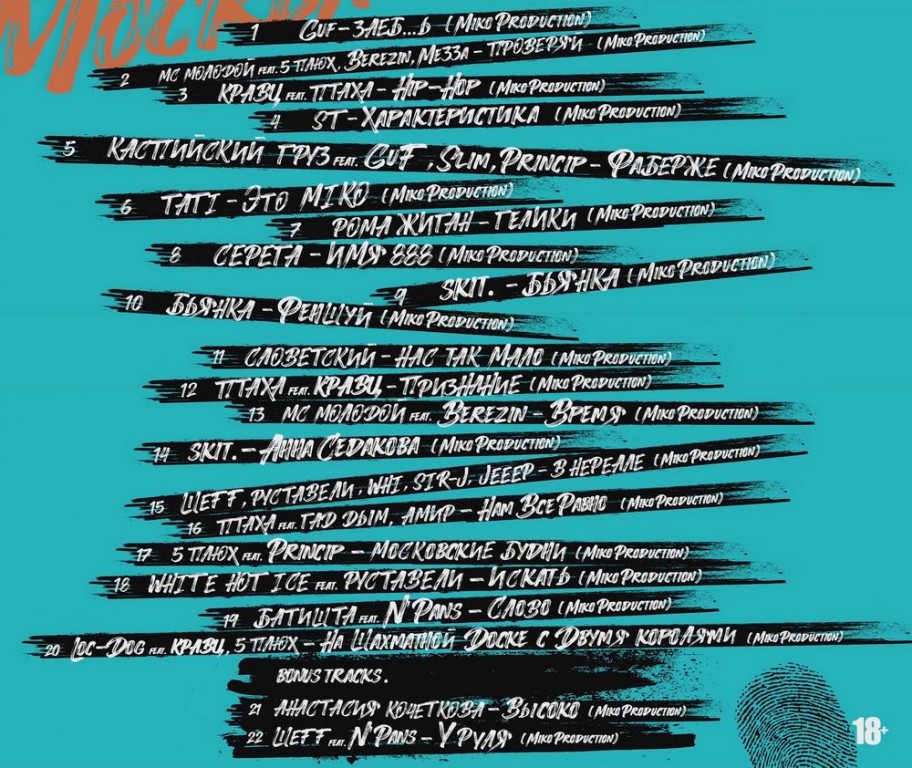 Москвы
1 GUF - ЗАЕБ...Ь (MIKO PRODUCTION)
2 МС МОЛОДОЙ FEAT. 5 ПЛЮХ, BEREZIN, МЕЗЗА - ПРОВЕРЯЙ (MIKO PRODUCTION)
3 КРАВЦ FEAT. ПТАХА - HIP-HOP (MIKO PRODUCTION)
4 ST - ХАРАКТЕРИСТИКА (MIKO PRODUCTION)
5 КАСПИЙСКИЙ ГРУЗ FEAT. GUF, SLIM, PRINCIP - ФАБЕРЖЕ (MIKO PRODUCTION)
6 ТАТІ - ЭТО MIKO (MIKO PRODUCTION)
7 РОМА ЖИГАН - ГЕЛИКИ (MIKO PRODUCTION)
8 СЕРЕГА - ИМЯ 888 (MIKO PRODUCTION)
9 SKIT. - БЬЯНКА (MIKO PRODUCTION)
10 БЬЯНКА - ФЕНШУЙ (MIKO PRODUCTION)
11 СЛОВЕТСКИЙ - НАС ТАК МАЛО (MIKO PRODUCTION)
12 ПТАХА FEAT. КРАВЦ - ПРИЗНАНИЕ (MIKO PRODUCTION)
13 МС МОЛОДОЙ FEAT. BEREZIN - ВРЕМЯ (MIKO PRODUCTION)
14 SKIT. - АННА СЕДАКОВА (MIKO PRODUCTION)
15 ШЕFF, РУСТАВЕЛИ, WHI, SIR-J, JEEEP - В НЕРЕАЛЕ (MIKO PRODUCTION)
16 ПТАХА FEAT. ГАД ДЫМ, АМИР - НАМ ВСЕ РАВНО (MIKO PRODUCTION)
17 5 ПЛЮХ FEAT. PRINCIP - МОСКОВСКИЕ БУДНИ (MIKO PRODUCTION)
18 WHITE HOT ICE FEAT. РУСТАВЕЛИ - ИСКАТЬ (MIKO PRODUCTION)
19 БАТИШТА FEAT. N'PANS - СЛОВО (MIKO PRODUCTION)
20 LOC-DOG FEAT. КРАВЦ, 5 ПЛЮХ - НА ШАХМАТНОЙ ДОСКЕ С ДВУМЯ КОРОЛЯМИ (MIKO PRODUCTION)
BONUS TRACKS.
21 АНАСТАСИЯ КОЧЕТКОВА - ВЫСОКО (MIKO PRODUCTION)
22 ШЕFF FEAT. N'PANS - У РУЛЯ (MIKO PRODUCTION)
18+